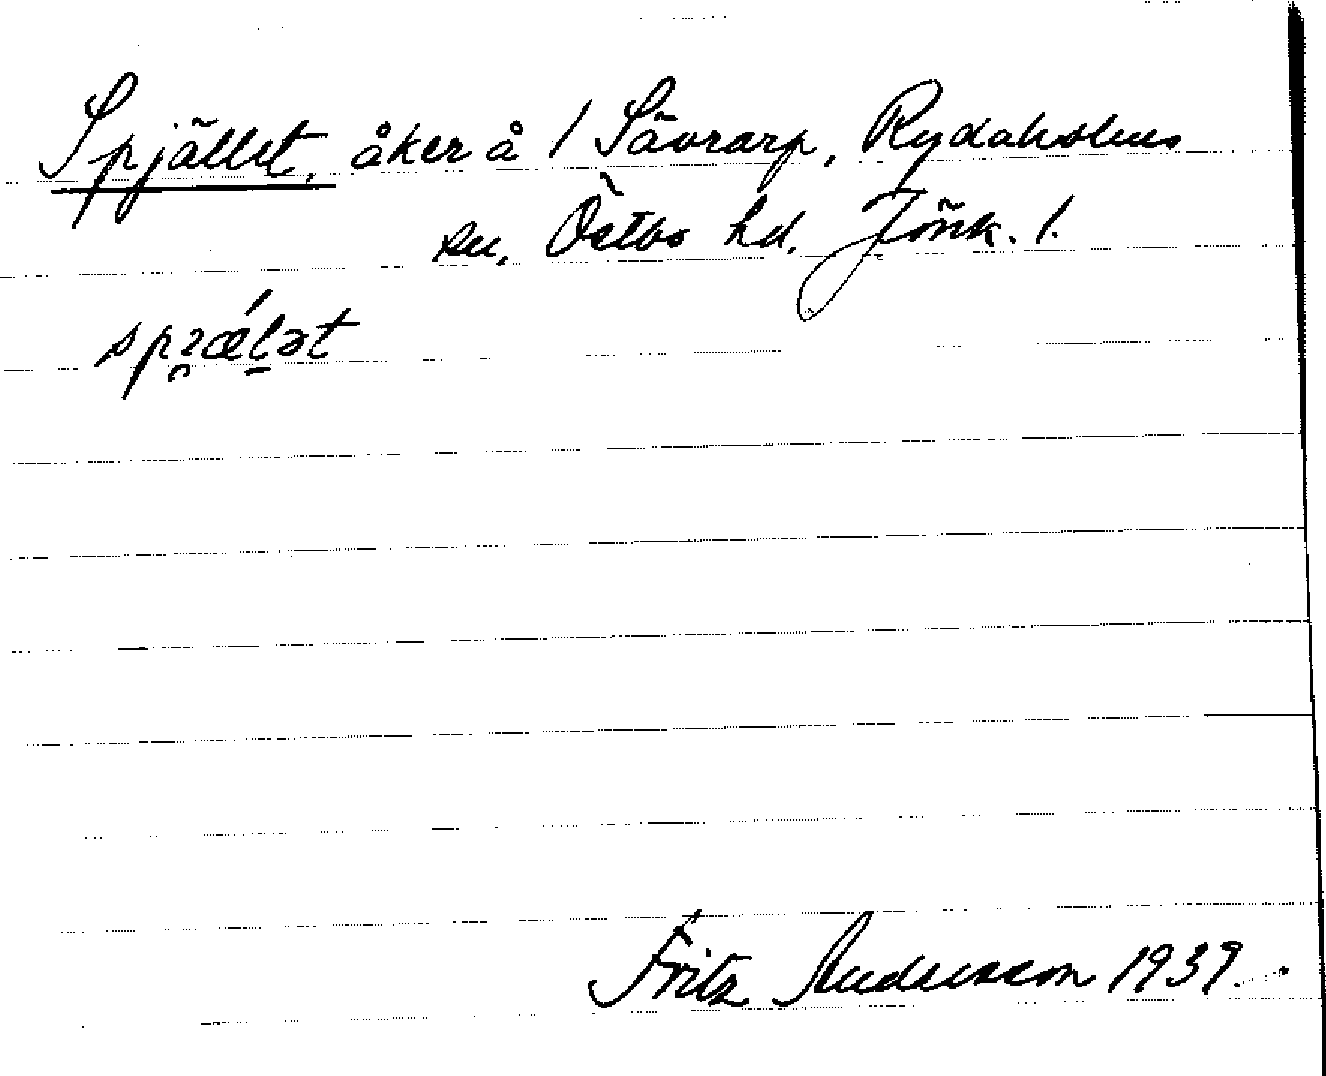 Spjället, åker å 1 Sävrarp, Rydaholms
sn, Östbo hd. Jönk. l.
Fritz Andersson 1939.